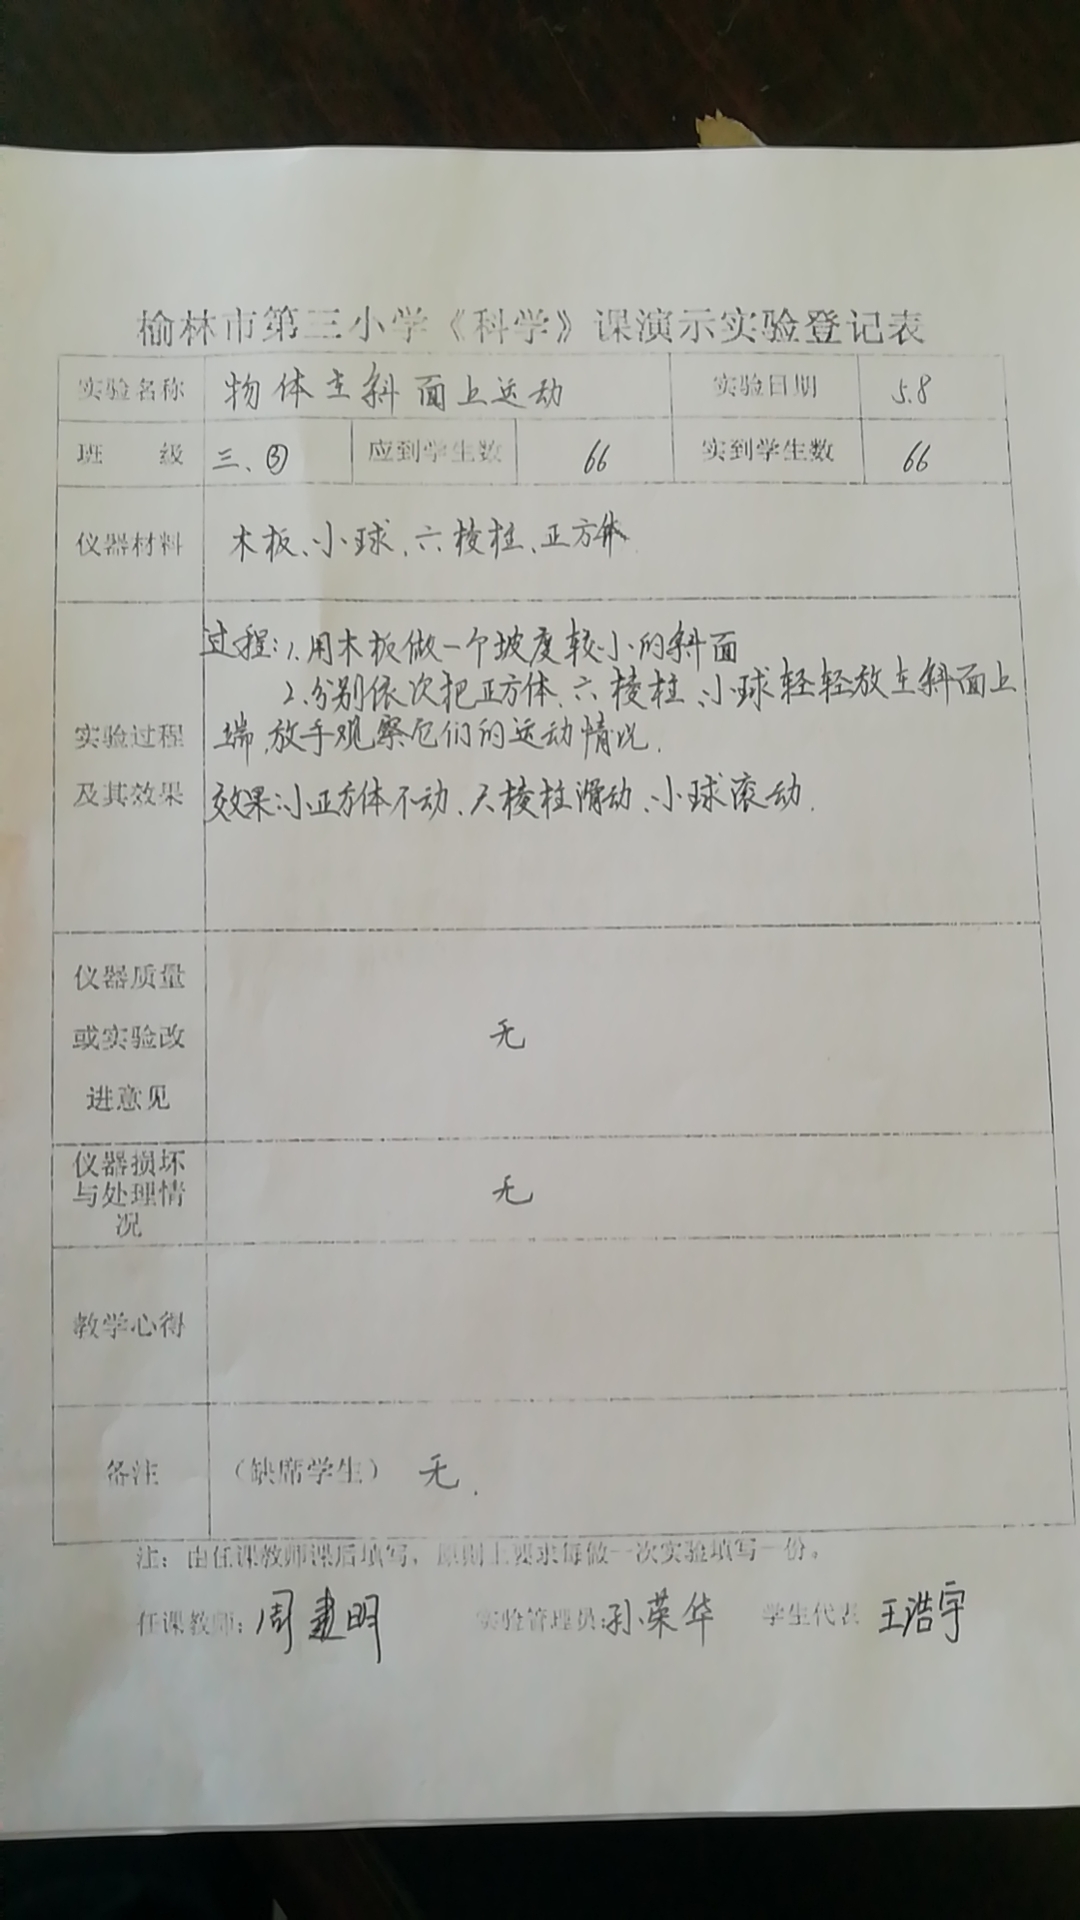 榆林市第三小学《科学》课演示实验登记表
实验名称 物体在斜面上运动 实验日期 5.8
班 级 三、③ 应到学生数 66 实到学生数 66
仪器材料 木板、小球、六棱柱、正方体
过程:1.用木板做一个坡度较小的斜面
2.分别依次把正方体、六棱柱、小球轻轻放在斜面上
实验过程 端,放手观察它们的运动情况.
及其效果 效果:小正方体不动、六棱柱滑动、小球滚动.
仪器质量
或实验改 无
进意见
仪器损坏
与处理情 无
况
教学心得
备注 (缺席学生) 无.
注:由任课教师课后填写,原则上要求每做一次实验填写一份。
任课教师:周建明 实验管理员:孙荣华 学生代表 王浩宇